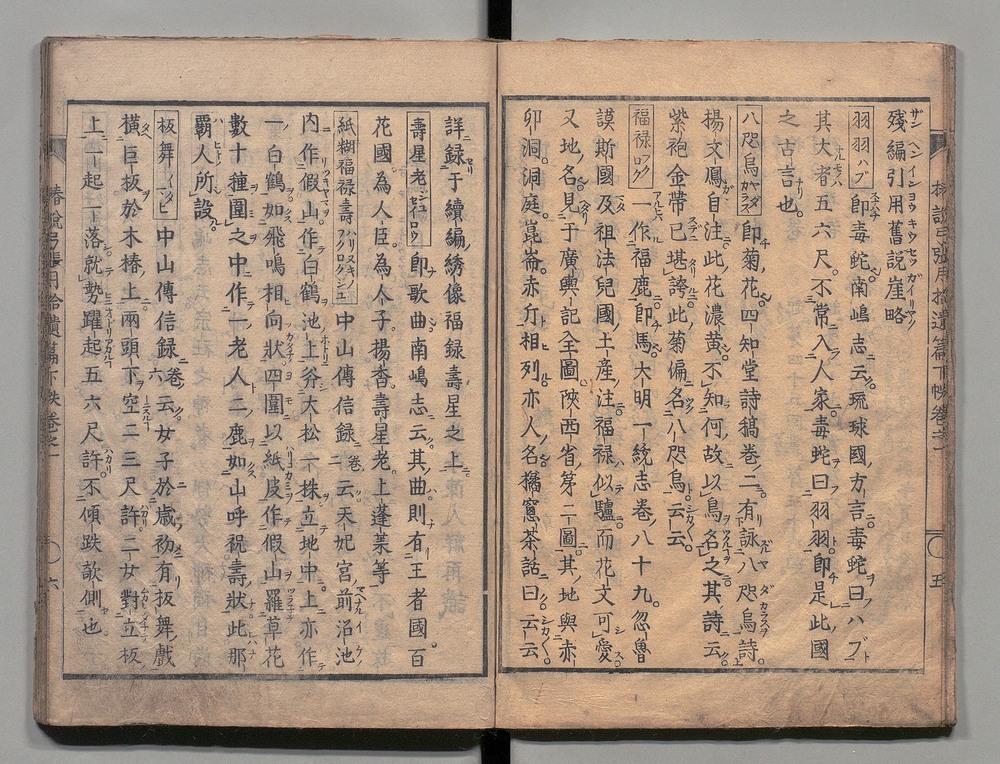 殘編引用舊説崖略
羽羽ハブ 即毒蛇。南嶋志云。琉球國方言毒蛇曰ハブ
其大者五六尺。不常入人家。毒蛇曰羽羽。即是此國
之古言也。
八咫烏 即菊花。四知堂詩稿卷二。有詠八咫烏詩。
楊文鳳自注。此花濃黄。不知何故以鳥名之。其詩云。
紫袍金帶已堪誇。此菊偏名八咫烏云云。
福禄 一作福鹿。即馬。大明一統志卷八十九。忽魯
謨斯國及祖法兒國土産。注福禄似驢而花文可愛
又地名。見于廣輿記全圖。陜西省第二圖。其地與赤
卯洞。洞庭。崑崙。赤斤。相列。亦人名。橘窻茶話曰云云
五
詳録于續編。綉像福録壽星之上。
壽星老 即歌曲。南嶋志云。其曲則有王者國。百
花國。為人臣。為人子。揚杏。壽星老。上蓬莱等
紙糊福禄壽 中山傳信録卷二云天妃宮前沼池
内作假山。作白鶴。池上夯大松一株立地中。上亦作
一白鶴如飛鳴相向狀。四圍以紙皮作假山。羅草花
數十種圍之中作一老人二鹿如山呼祝壽狀此那
覇人所設。
板舞 中山傳信録卷六云。女子於歳初有板舞戲
橫巨板於木椿上。兩頭下空二三尺許。二女對立板
上。一起一落。就勢躍起五六尺許。不傾跌欹側也。
椿説弓張月拾遺篇下帙卷之一
六